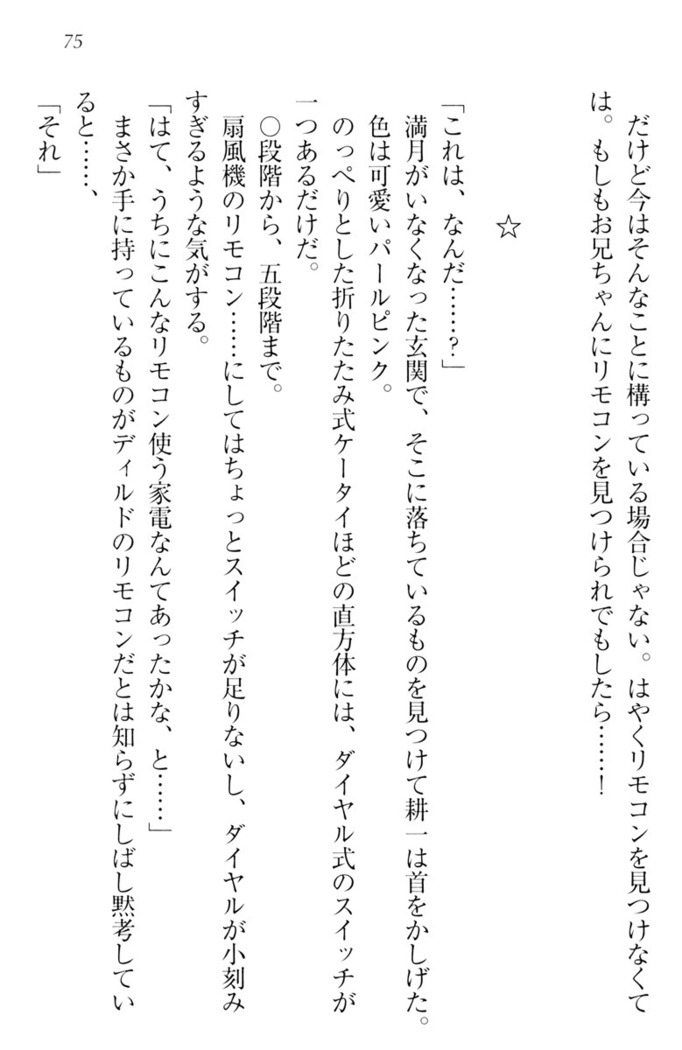 75
だけど今はそんなことに構っている場合じゃない。はやくリモコンを見つけなくて
は。もしもお兄ちゃんにリモコンを見つけられでもしたら……！
☆
「これは、なんだ……？」
満月がいなくなった玄関で、そこに落ちているものを見つけて耕一は首をかしげた。
色は可愛いパールピンク。
のっぺりとした折りたたみ式ケータイほどの直方体には、ダイヤル式のスイッチが
一つあるだけだ。
〇段階から、五段階まで。
扇風機のリモコン……にしてはちょっとスイッチが足りないし、ダイヤルが小刻み
すぎるような気がする。
「はて、うちにこんなリモコン使う家電なんてあったかな、と……」
まさか手に持っているものがディルドのリモコンだとは知らずにしばし黙考してい
ると……、
「それ」